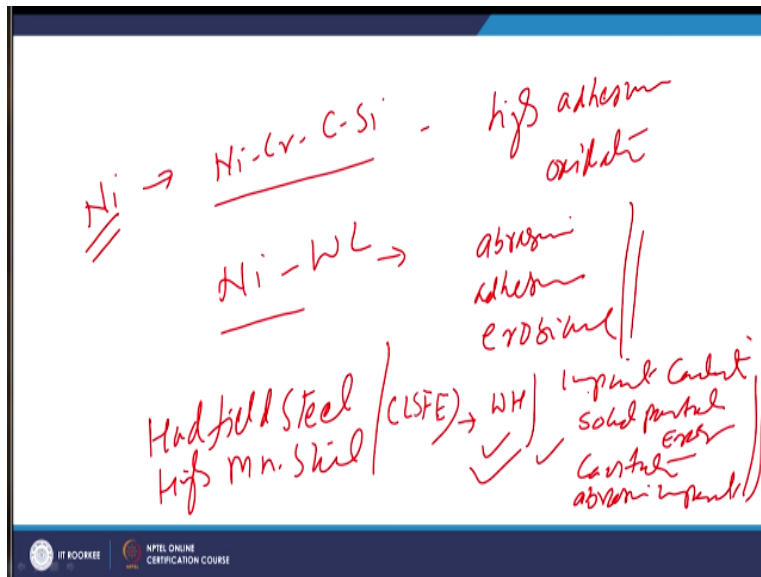 Ni → Ni-Cr-C-Si - high adhesion
oxidation
Ni - WC → abrasion
adhesion
erosion
Hadfield Steel
High Mn. Steel
(LSFE) → WH
Impact
solid particle
abrasion impact
IIT ROORKEE
NPTEL ONLINE
CERTIFICATION COURSE